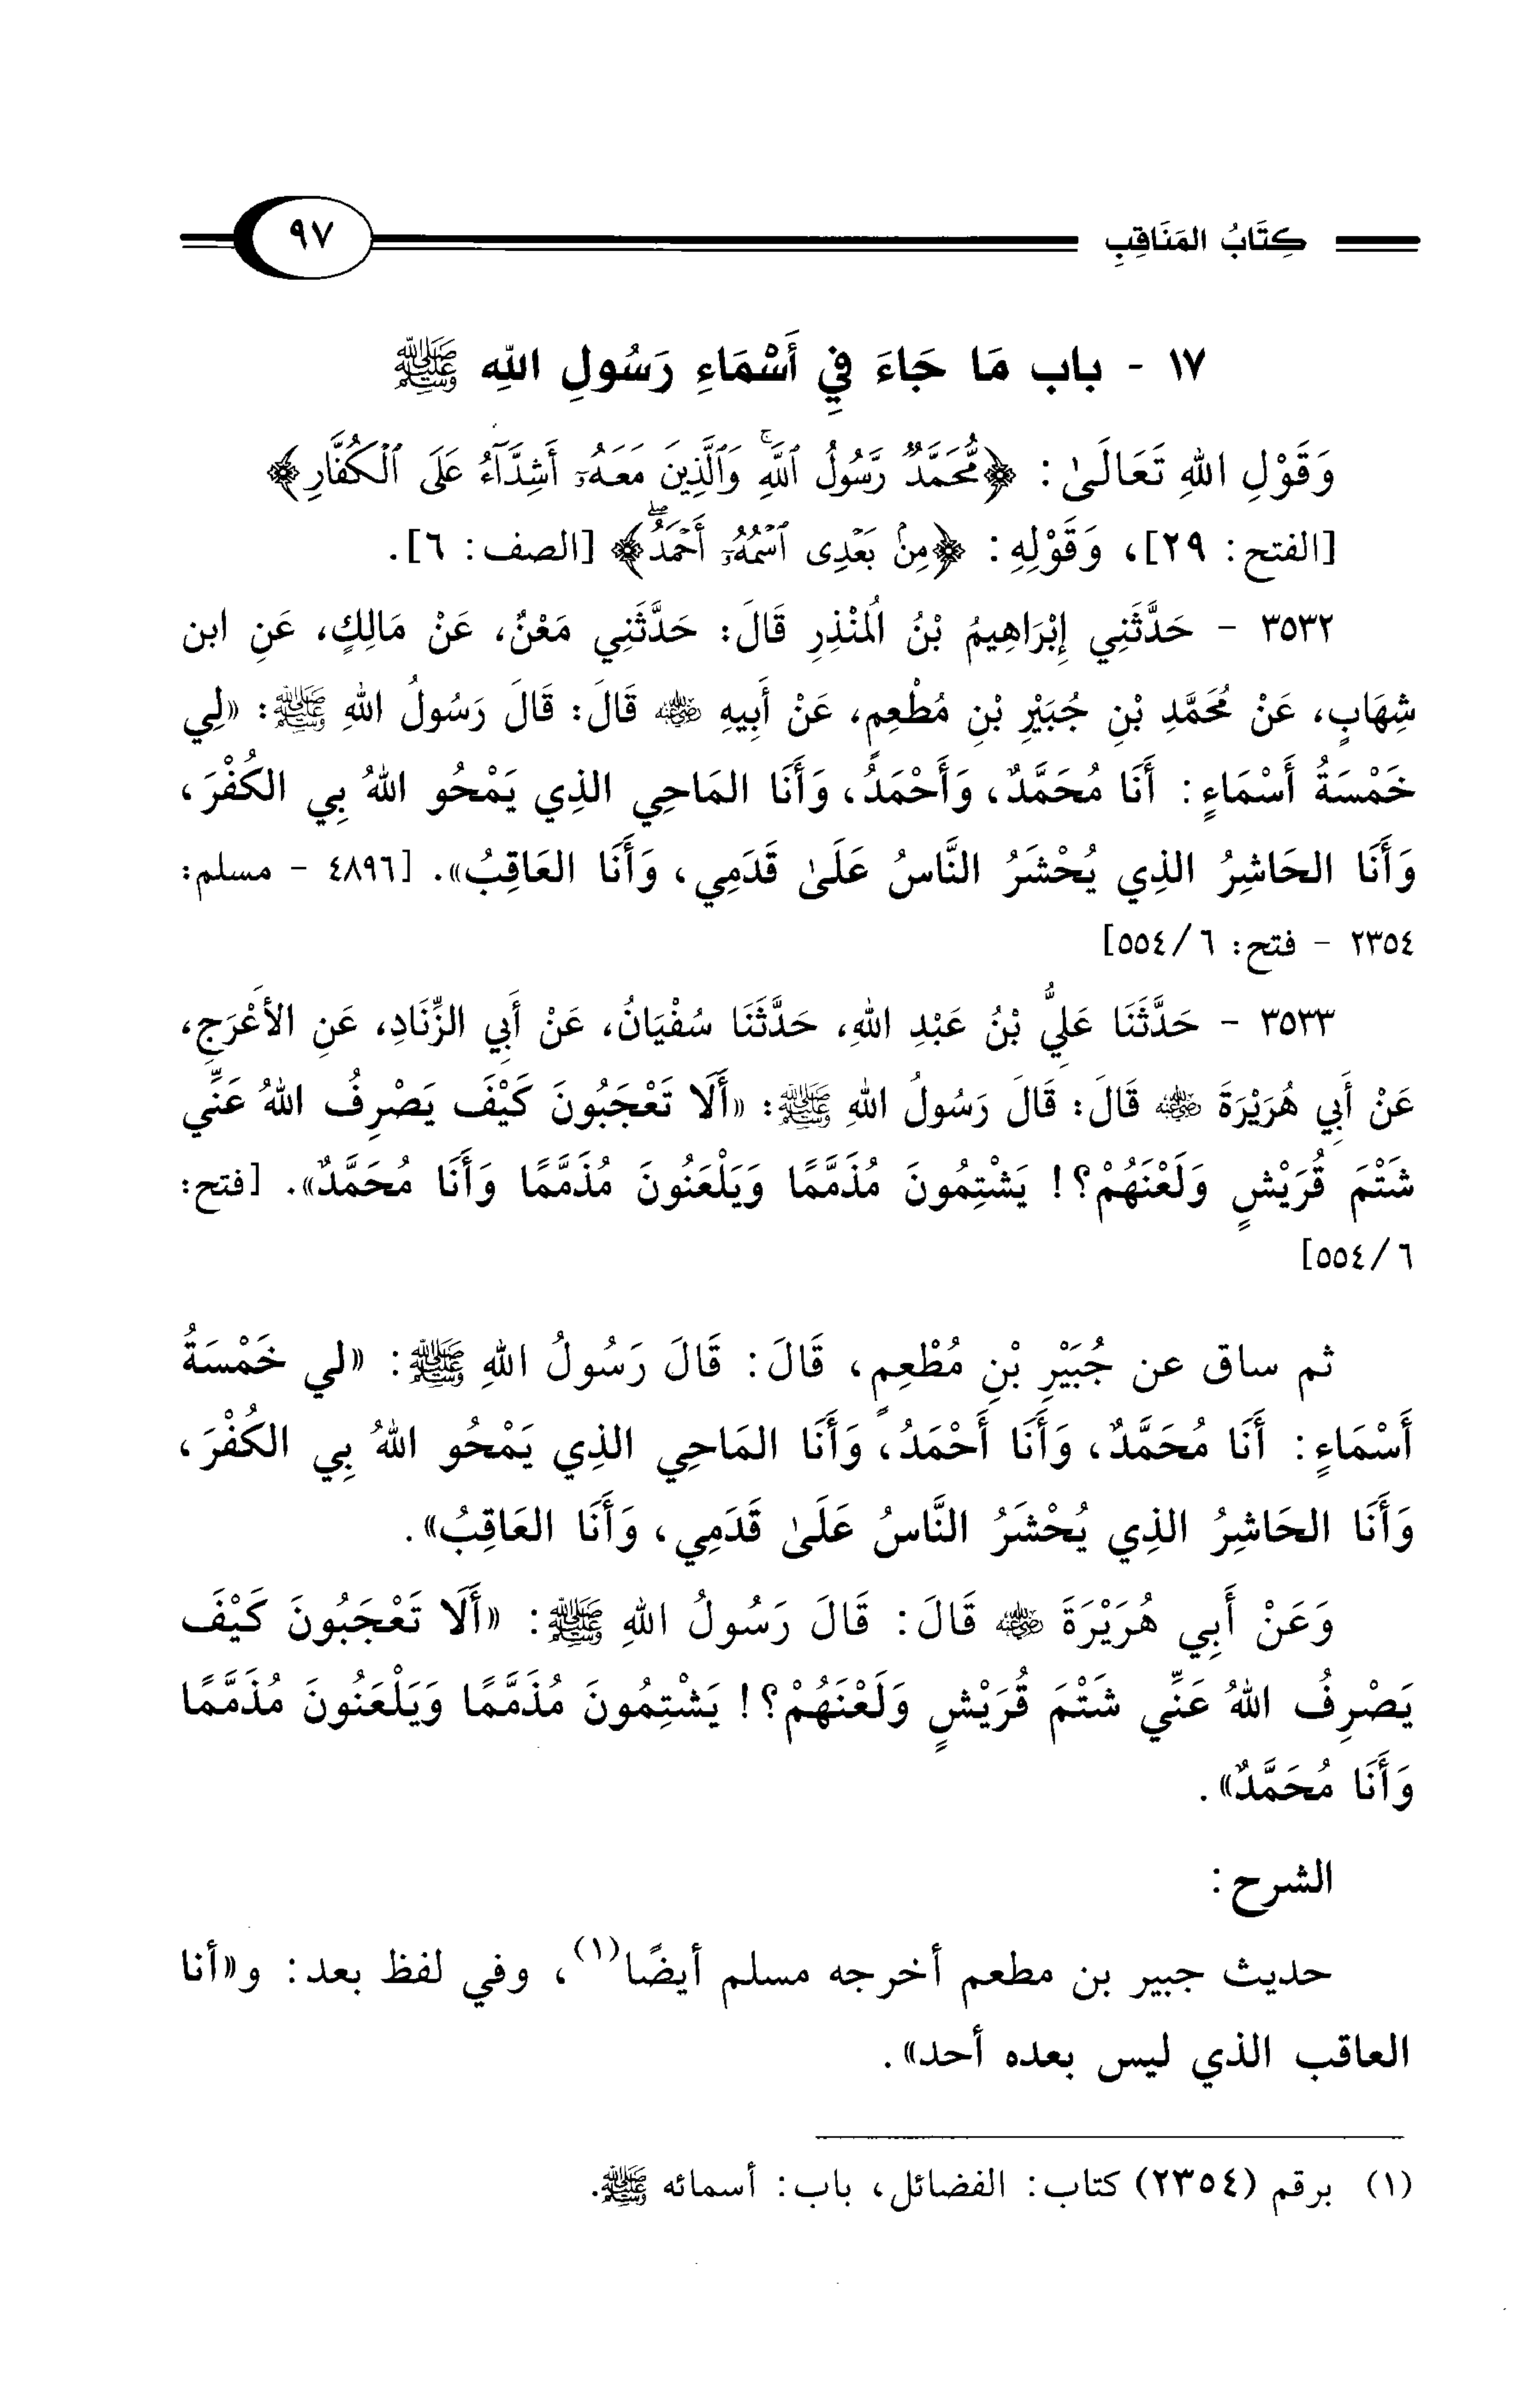 كِتَابُ المَنَاقِبِ ٩٧
١٧ - باب مَا جَاءَ فِي أَسْمَاءِ رَسُولِ اللهِ ﷺ
وَقَوْلِ اللهِ تَعَالَىٰ: ﴿مُّحَمَّدٌ رَّسُولُ ٱللَّهِۚ وَٱلَّذِينَ مَعَهُۥٓ أَشِدَّآءُ عَلَى ٱلْكُفَّارِ﴾
[الفتح: ٢٩]، وَقَوْلِهِ: ﴿مِنۢ بَعْدِى ٱسْمُهُۥٓ أَحْمَدُۖ﴾ [الصف: ٦].
٣٥٣٢ - حَدَّثَنِي إِبْرَاهِيمُ بْنُ الُمنْذِرِ قَالَ: حَدَّثَنِي مَعْنٌ، عَنْ مَالِكٍ، عَنِ ابن
شِهَابٍ، عَنْ مُحَمَّدِ بْنِ جُبَيْرِ بْنِ مُطْعِمٍ، عَنْ أَبِيهِ رضي الله عنه قَالَ: قَالَ رَسُولُ اللهِ ﷺ: «لِي
خَمْسَةُ أَسْمَاءٍ: أَنَا مُحَمَّدٌ، وَأَحْمَدُ، وَأَنَا المَاحِي الذِي يَمْحُو اللهُ بِي الكُفْرَ،
وَأَنَا الحَاشِرُ الذِي يُحْشَرُ النَّاسُ عَلَىٰ قَدَمِي، وَأَنَا العَاقِبُ». [٤٨٩٦ - مسلم:
٢٣٥٤ - فتح: ٦/ ٥٥٤]
٣٥٣٣ - حَدَّثَنَا عَلِيُّ بْنُ عَبْدِ اللهِ، حَدَّثَنَا سُفْيَانُ، عَنْ أَبِي الزِّنَادِ، عَنِ الأَعْرَجِ،
عَنْ أَبِي هُرَيْرَةَ رضي الله عنه قَالَ: قَالَ رَسُولُ اللهِ ﷺ: «أَلَا تَعْجَبُونَ كَيْفَ يَصْرِفُ اللهُ عَنِّي
شَتْمَ قُرَيْشٍ وَلَعْنَهُمْ؟! يَشْتِمُونَ مُذَمَّمًا وَيَلْعَنُونَ مُذَمَّمًا وَأَنَا مُحَمَّدٌ». [فتح:
٦/ ٥٥٤]
ثم ساق عن جُبَيْرِ بْنِ مُطْعِمٍ، قَالَ: قَالَ رَسُولُ اللهِ ﷺ: «لي خَمْسَةُ
أَسْمَاءٍ: أَنَا مُحَمَّدٌ، وَأَنَا أَحْمَدُ، وَأَنَا المَاحِي الذِي يَمْحُو اللهُ بِي الكُفْرَ،
وَأَنَا الحَاشِرُ الذِي يُحْشَرُ النَّاسُ عَلَىٰ قَدَمِي، وَأَنَا العَاقِبُ».
وَعَنْ أَبِي هُرَيْرَةَ رضي الله عنه قَالَ: قَالَ رَسُولُ اللهِ ﷺ: «أَلَا تَعْجَبُونَ كَيْفَ
يَصْرِفُ اللهُ عَنِّي شَتْمَ قُرَيْشٍ وَلَعْنَهُمْ؟! يَشْتِمُونَ مُذَمَّمًا وَيَلْعَنُونَ مُذَمَّمًا
وَأَنَا مُحَمَّدٌ».
الشرح:
حديث جبير بن مطعم أخرجه مسلم أيضًا(١)، وفي لفظ بعد: و«أنا
العاقب الذي ليس بعده أحد».
(١) برقم (٢٣٥٤) كتاب: الفضائل، باب: أسمائه ﷺ.